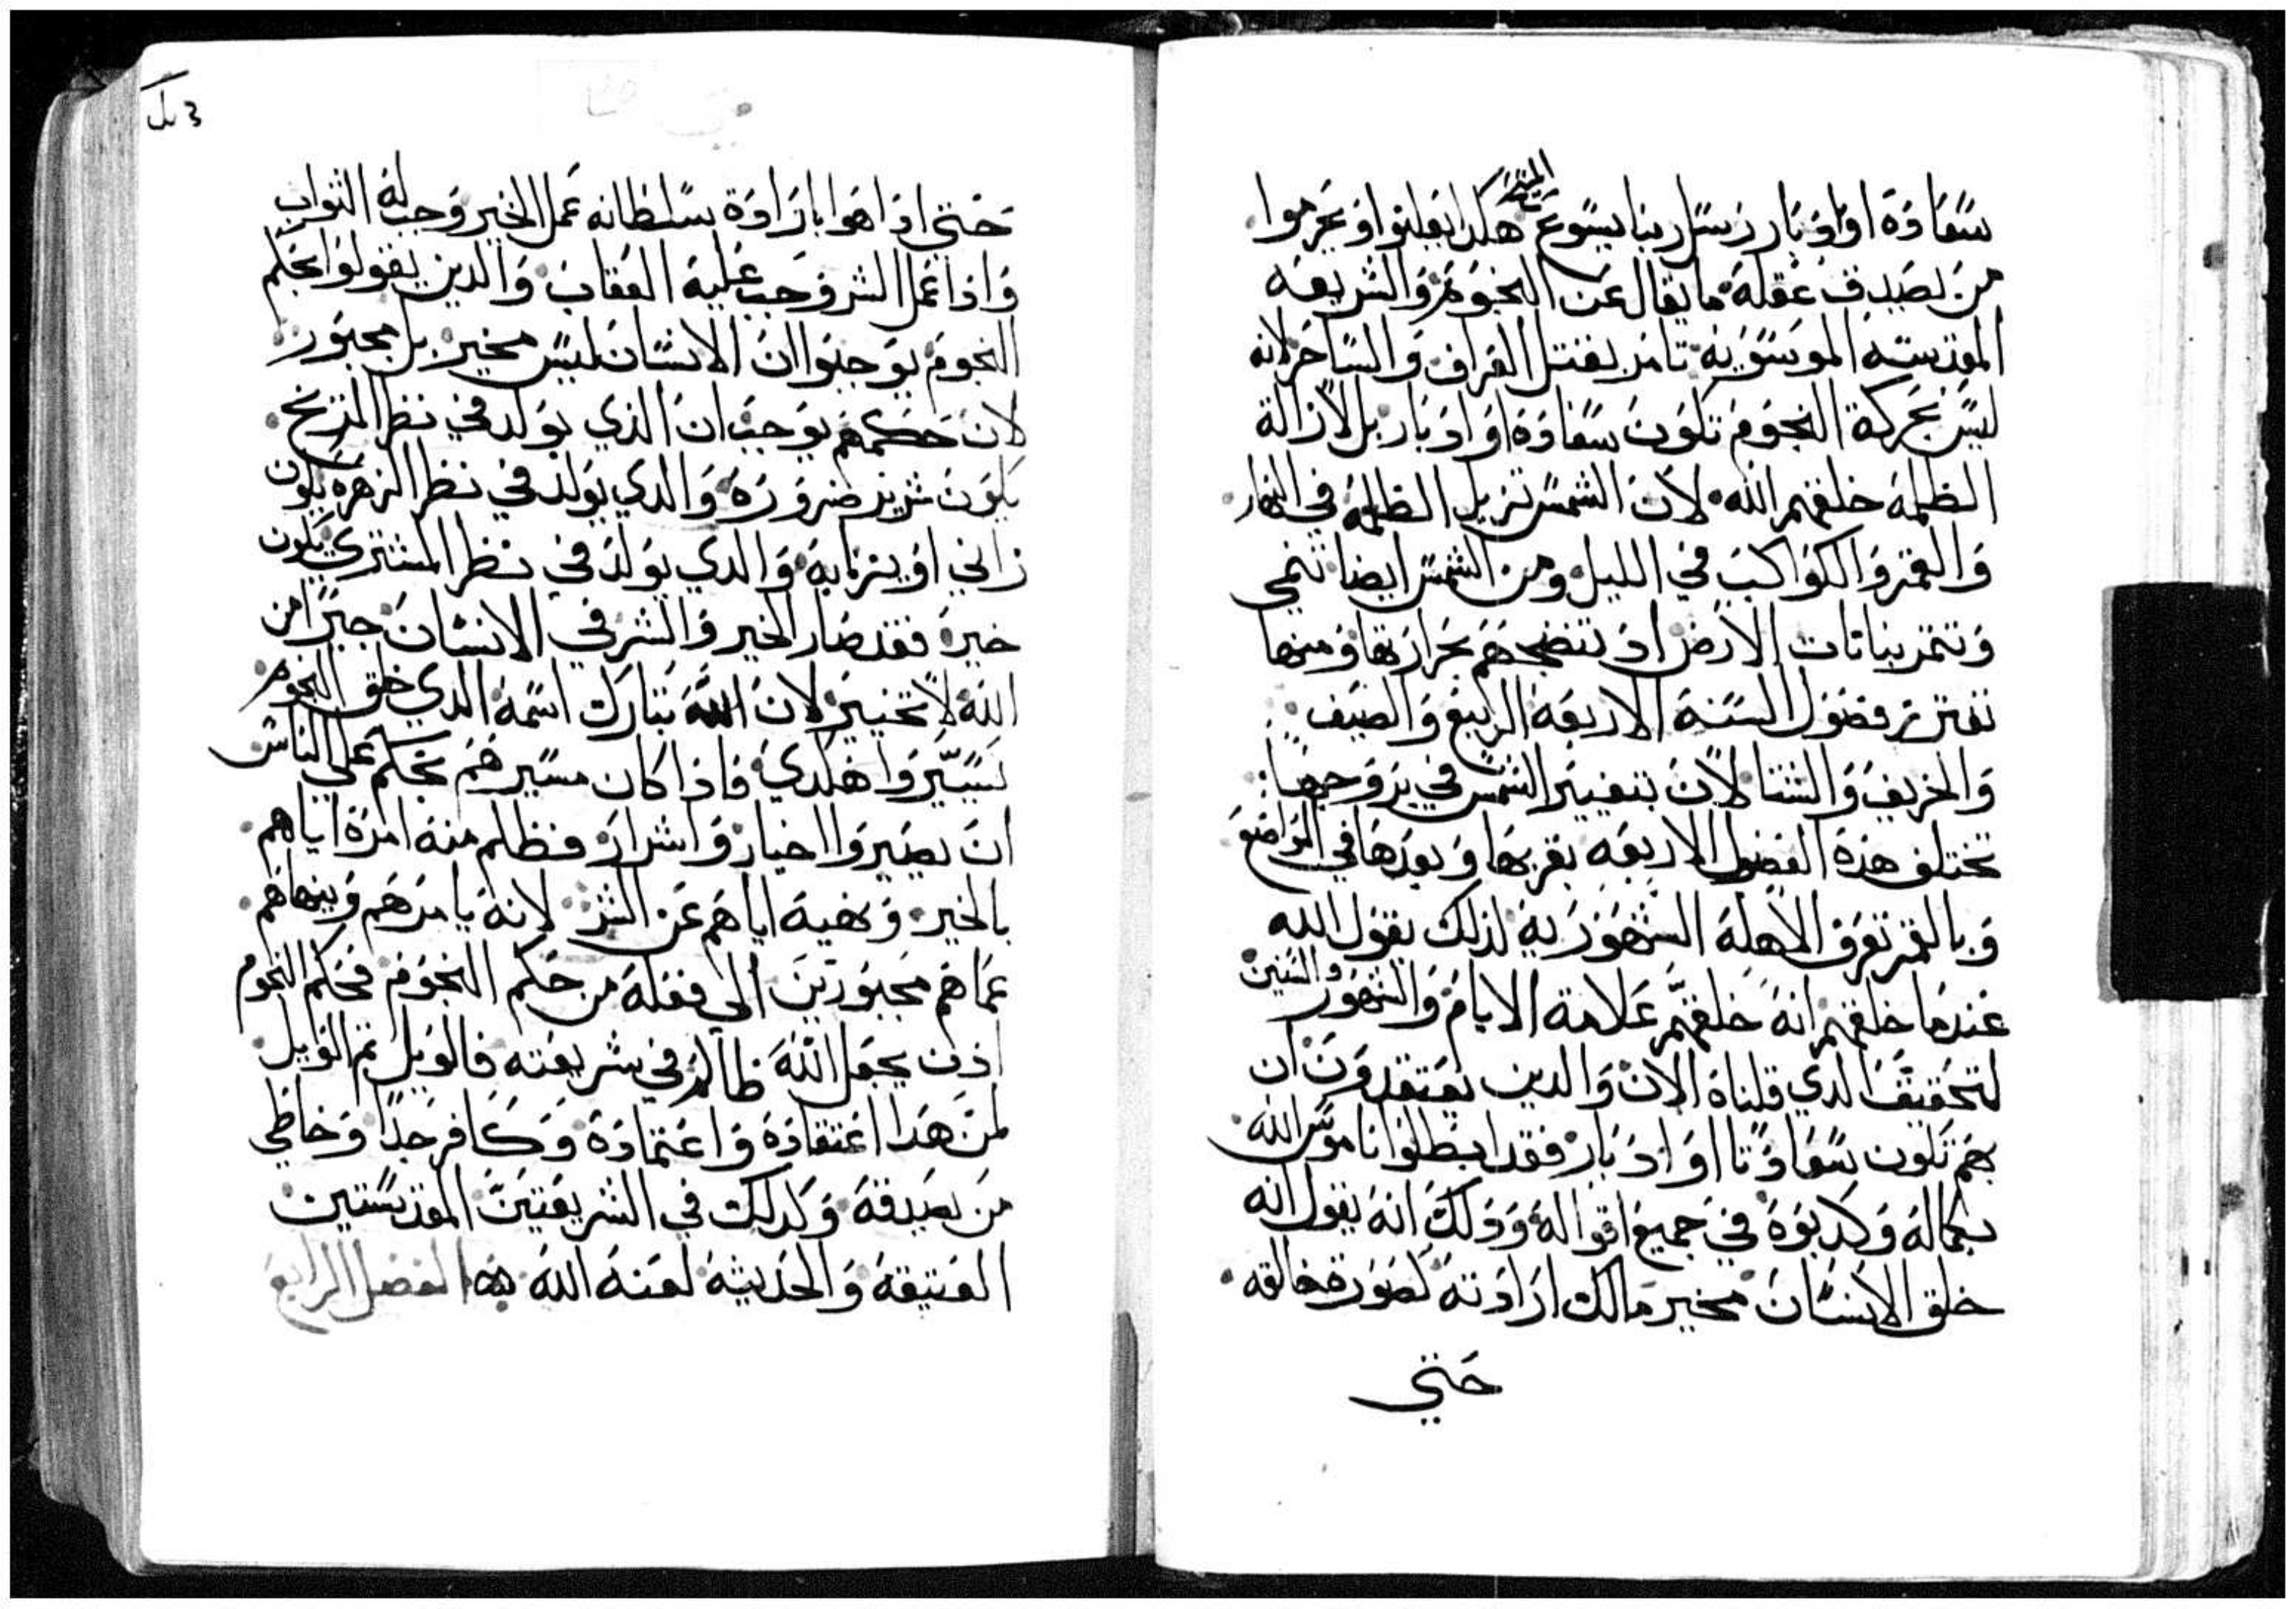 سعادة او ادبار رسل ربنا يسوع المسيح هكدا يعلنوا ويحرموا
من يصدق عقله ما يقال عن النجوم والشريعه
المقدسه الموسويه تامر بقتل العراف والساحر لانه
ليس بحركة النجوم تكون سعادة او ادبار بل لازالة
الظلمه خلقهم الله لان الشمس تزيل الظلمه في النهار
والقمر والكواكب في الليل ومن الشمس ايضا تنمى
وتتمر بناتات الارض اد تنضجهم بحرارتها ومنها
تفترز فصول السنة الاربعه الربيع والصيف
والخريف والشتا لان بتغيير الشمس في بروجها
تختلف هذه الفصول الاربعه بقربها وبعدها في المواضع
وبالقمر تعرف الاهلة الشهوريه لذلك يقول الله
عندما خلقهم انه خلقهم علامة الايام والشهور والسنين
لتحقيق الدي قلناه الان والدين يعتقدون ان
بهم تكون سعادتا او ادبار فقد ابطلوا ناموس الله
بكماله وكدبوه في جميع اقواله ودلك انه يقول انه
خلق الانسان مخير مالك ارادته كصورة خالقه
حتي
3
حتي اذا هوا بارادة بسلطانه عمل الخير وجب له التواب
واذا عمل الشر وجب عليه العقاب والدين يقولوا بحكم
النجوم يوجبوا ان الانسان ليس مخير بل مجبور
لان حكمهم يوجب ان الذي يولد في نظر المريخ
يكون شرير ضرورة والدي يولد في نظر الزهره يكون
زاني او يزنا به والدي يولد في نظر المشتري يكون
خير فقد صار الخير والشر في الانسان جبرا من
الله لا تخيير لان الله تبارك اسمه الدي خلق النجوم
يسيروا هكدي فاذا كان مسيرهم يحكم على الناس
ان يصيروا اخيار واشرار فظلم منه امرة اياهم
بالخير ونهيه اياهم عن الشر لانه يامرهم وينهاهم
عما هم مجبورين الي فعله من حكم النجوم فحكم النجوم
اذن يجعل الله ظالم في شريعته فالويل تم الويل
لمن هدا اعتقاده واعتماده وكافر جدا وخاطي
من يصدقه وكدلك في الشريعتين المقدستين
العتيقه والحديثه لعنه الله الفصل الرابع